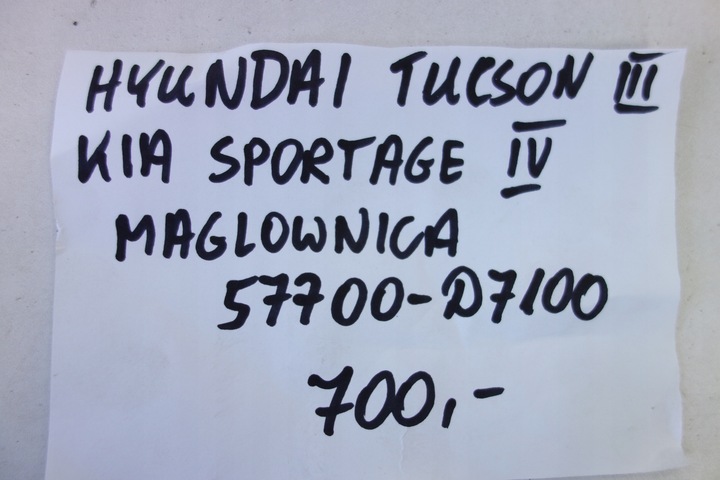 HYUNDAI TUCSON III
KIA SPORTAGE IV
MAGLOWNICA
57700-D7100
700,-